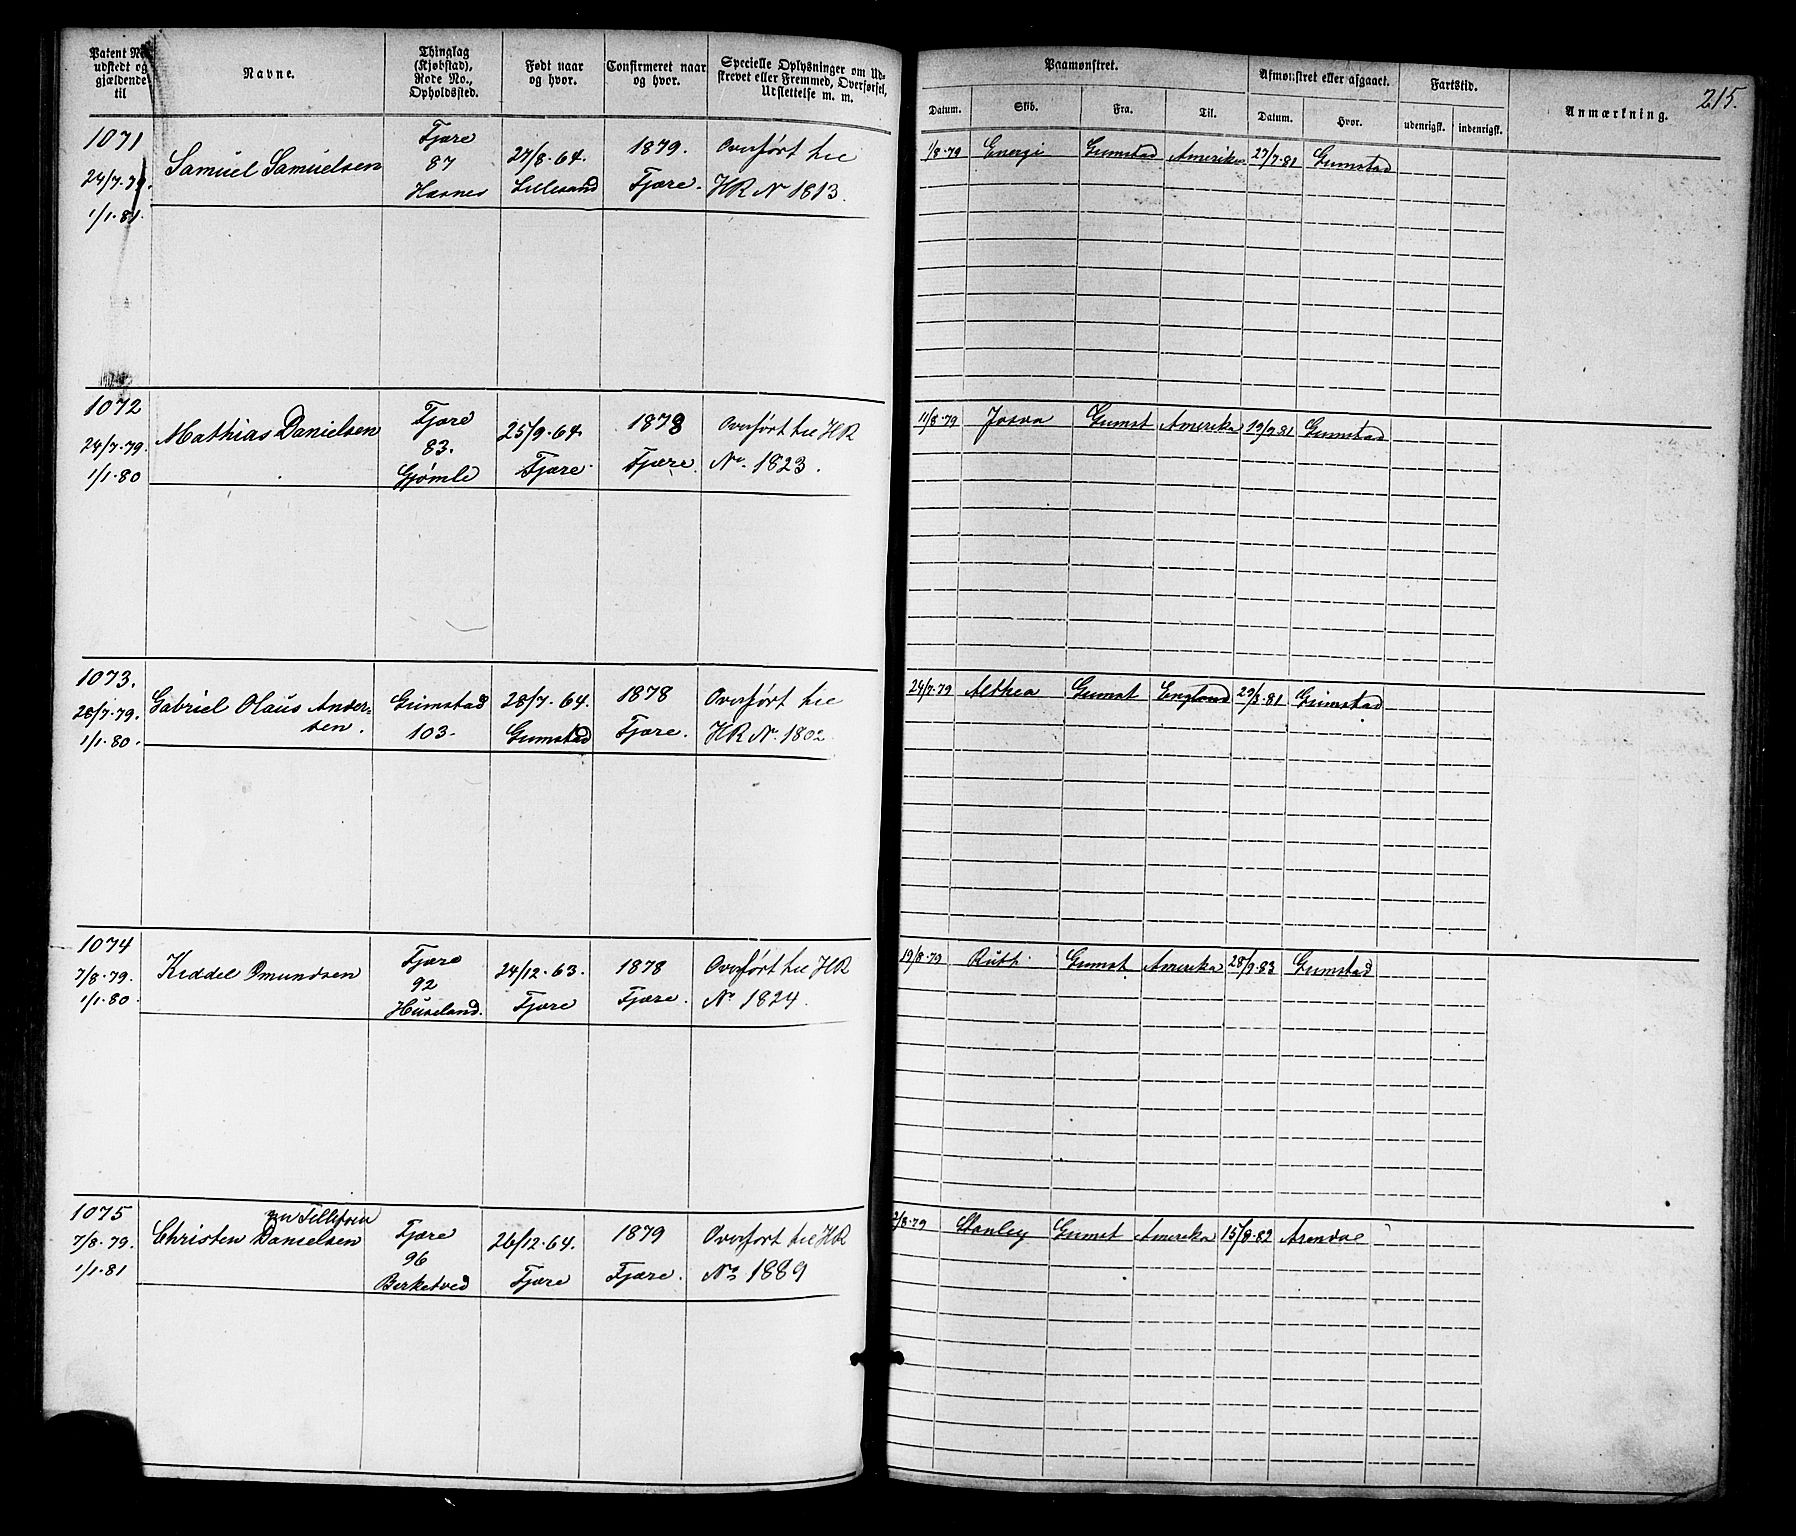 Patent No. udstedt og gjældende til
Navne.
Thinglag (Kjøbstad), Rode No., Opholdssted.
Født naar og hvor.
Confirmeret naar og hvor.
Specielle Oplysninger om Udskrevet eller Fremmed, Overførsel, Udslettelse m. m.
Paamønstret.
Datum. Skib. Fra. Til.
Afmønstret eller afgaaet.
Datum. Hvor.
Fartstid.
udenrigsk. indenrigsk.
Anmærkning.
215.
1071
24/7.79.
1/1.81.
Samuel Samuelsen
Fjære
87
Hasnes
27/8.64.
Lillesand
1879.
Fjære.
Overført til
HR No 1813.
1/8.79 Energi Grimstad Amerika 27/7.81 Grimstad
1072
24/7.79.
1/1.80
Mathias Danielsen
Fjære
83.
Gjømle
25/9.64.
Fjære.
1878
Fjære.
Overført til HR
No. 1823.
11/8.79 Josva Grimst Amerika 19/9.81 Grimstad
1073.
28/7.79.
1/1.80.
Gabriel Olaus Ander-
sen.
Grimstad
103.
28/7.64.
Grimstad
1878
Fjære.
Overført til
HR No. 1802
24/7.79 Althea Grimst England 29/3.81 Grimstad
1074
7/8.79.
1/1.80.
Keddel Omundsen
Fjære
92
Huseland.
24/12.63.
Fjære
1878
Fjære.
Overført til HR
No 1824.
19/8.79 Ruth. Grimst Amerika 28/9.83 Grimstad
1075
7/8.79.
1/1.81
Christen Danielsen
Fjære
96
Birketved
26/12.64.
Fjære
1879
Fjære.
Overført til HR
No 1889
2/8.79 Stanley Grimst Amerika 15/8.82 Arendal